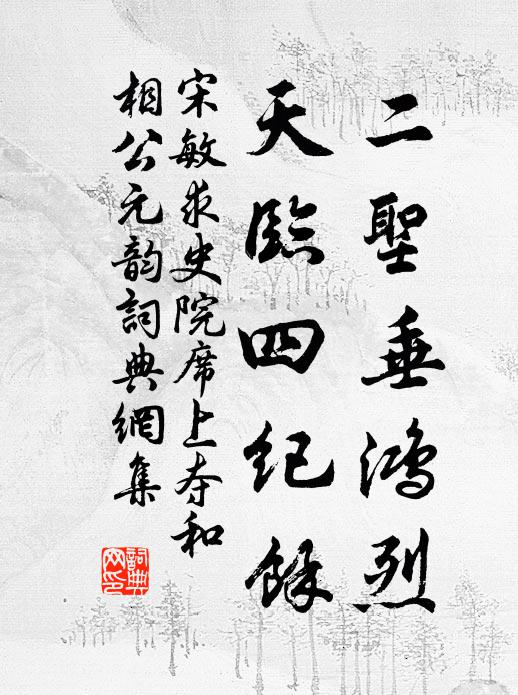 二聖垂鴻烈
天臨四紀餘
宋敏求史院席上夲和
相公元韵詞典網集
詞典
网印